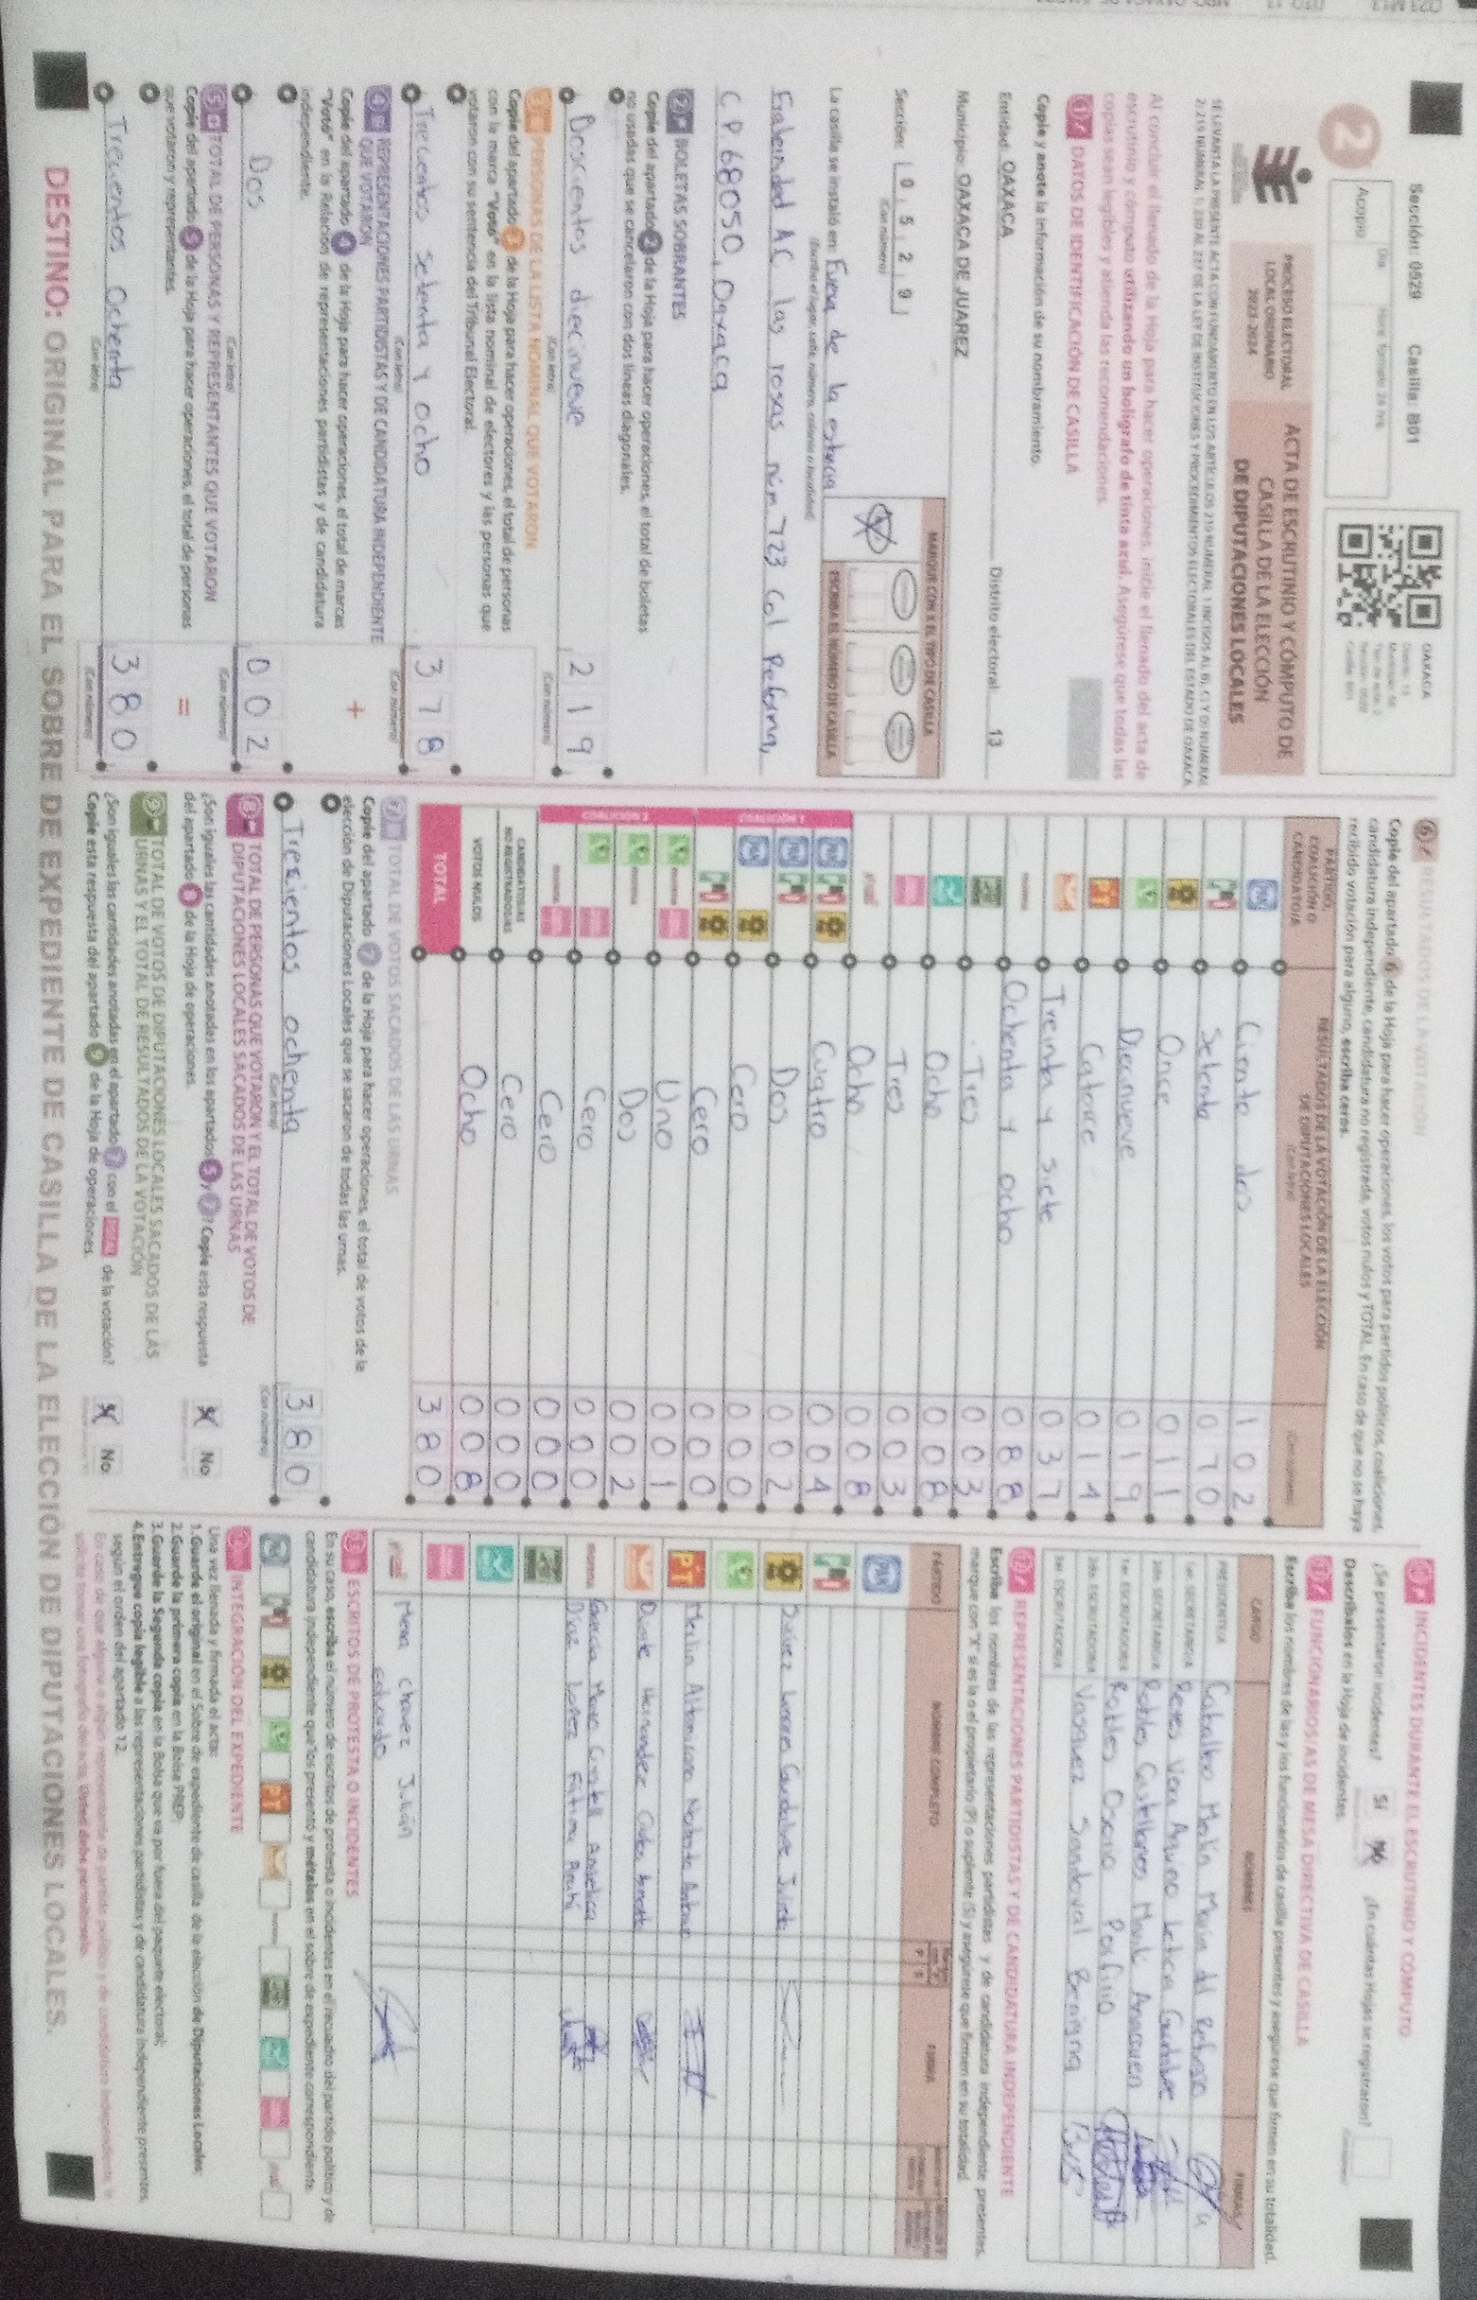 Sección: 0529 Casilla: B01
2
Día
Hora: formato 24 hrs
Acopio
OAXACA
PROCESO ELECTORAL
LOCAL ORDINARIO
2023-2024
ACTA DE ESCRUTINIO Y CÓMPUTO DE
CASILLA DE LA ELECCIÓN
DE DIPUTACIONES LOCALES
Al concluir el llenado de la Hoja para hacer operaciones, inicie el llenado del acta de
escrutinio y cómputo utilizando un bolígrafo de tinta azul. Asegúrese que todas las
copias sean legibles y atienda las recomendaciones.
1 DATOS DE IDENTIFICACIÓN DE CASILLA
Copie y anote la información de su nombramiento.
Entidad: OAXACA Distrito electoral 13
Municipio: OAXACA DE JUAREZ
Sección: 0529
(Con número)
MARQUE CON X EL TIPO DE CASILLA
ESCRIBA EL NÚMERO DE CASILLA
La casilla se instaló en: Fuera de la estancia
(Escriba el lugar, calle, número, colonia o localidad)
Fraternidad AC las rosas núm 723 Col Reforma,
C.P. 68050, Oaxaca
2 BOLETAS SOBRANTES
Copie del apartado 2 de la Hoja para hacer operaciones, el total de boletas
no usadas que se cancelaron con dos líneas diagonales.
Doscientos diecinueve 219
(Con letra) (Con número)
3 PERSONAS DE LA LISTA NOMINAL QUE VOTARON
Copie del apartado 3 de la Hoja para hacer operaciones, el total de personas
con la marca "Votó" en la lista nominal de electores y las personas que
votaron con su sentencia del Tribunal Electoral.
Trecientos setenta y ocho 378
(Con letra) (Con número)
4 REPRESENTACIONES PARTIDISTAS Y DE CANDIDATURA INDEPENDIENTE
QUE VOTARON
Copie del apartado 4 de la Hoja para hacer operaciones, el total de marcas
"Votó" en la Relación de representaciones partidistas y de candidatura
independiente.
+
Dos 002
(Con letra) (Con número)
5 TOTAL DE PERSONAS Y REPRESENTANTES QUE VOTARON
Copie del apartado 5 de la Hoja para hacer operaciones, el total de personas
que votaron y representantes.
=
Trecientos Ochenta 380
(Con letra) (Con número)
6 RESULTADOS DE LA VOTACIÓN
Copie del apartado 6 de la Hoja para hacer operaciones, los votos para partidos políticos, coaliciones,
candidatura independiente, candidatura no registrada, votos nulos y TOTAL. En caso de que no se haya
recibido votación para alguno, escriba ceros.
PARTIDO,
COALICIÓN O
CANDIDATO/A
RESULTADOS DE LA VOTACIÓN DE LA ELECCIÓN
DE DIPUTACIONES LOCALES
(Con letra)
(Con número)
PAN Ciento dos 102
PRI Setenta 070
PRD Once 011
Diecinueve 019
PT Catorce 014
Treinta y siete 037
morena Ochenta y ocho 088
Tres 003
Ocho 008
Tres 003
Ocho 008
Cuatro 004
Dos 002
Cero 000
Cero 000
Uno 001
Dos 002
Cero 000
Cero 000
COALICIÓN 1
COALICIÓN 2
CANDIDATOS/AS
NO REGISTRADOS/AS
Cero 000
VOTOS NULOS Ocho 008
TOTAL 380
7 TOTAL DE VOTOS SACADOS DE LAS URNAS
Copie del apartado 7 de la Hoja para hacer operaciones, el total de votos de la
elección de Diputaciones Locales que se sacaron de todas las urnas.
Trescientos ochenta 380
(Con letra) (Con número)
8 TOTAL DE PERSONAS QUE VOTARON Y EL TOTAL DE VOTOS DE
DIPUTACIONES LOCALES SACADOS DE LAS URNAS
¿Son iguales las cantidades anotadas en los apartados 5 y 7? Copie esta respuesta
del apartado 8 de la Hoja de operaciones.
Sí No
9 TOTAL DE VOTOS DE DIPUTACIONES LOCALES SACADOS DE LAS
URNAS Y EL TOTAL DE RESULTADOS DE LA VOTACIÓN
¿Son iguales las cantidades anotadas en el apartado 7 con el TOTAL de la votación?
Copie esta respuesta del apartado 9 de la Hoja de operaciones.
Sí No
10 INCIDENTES DURANTE EL ESCRUTINIO Y CÓMPUTO
¿Se presentaron incidentes? Sí No ¿En cuántas Hojas se registraron?
Descríbalos en la Hoja de incidentes.
11 FUNCIONARIOS/AS DE MESA DIRECTIVA DE CASILLA
Escriba los nombres de las y los funcionarios de casilla presentes y asegúrese que firmen en su totalidad.
CARGO NOMBRES FIRMAS
PRESIDENTE/A Caballero Merlín María del Refugio
1er. SECRETARIO/A Reyes Vera Aquino Leticia Guadalupe
2do. SECRETARIO/A Robles Castellanos
1er. ESCRUTADOR/A Robles Osorio Porfirio
2do. ESCRUTADOR/A Vasquez Sandoval Benigna
3er. ESCRUTADOR/A
12 REPRESENTACIONES PARTIDISTAS Y DE CANDIDATURA INDEPENDIENTE
Escriba los nombres de las representaciones partidistas y de candidatura independiente presentes,
marque con "X" si es la o el propietario (P) o suplente (S) y asegúrese que firmen en su totalidad.
PARTIDO NOMBRE COMPLETO FIRMA
PAN
PRI
PRD
PT
morena García
Diaz Lopez Fatima
Mena Chavez Julián
Eduardo
13 ESCRITOS DE PROTESTA O INCIDENTES
En su caso, escriba el número de escritos de protesta o incidentes en el recuadro del partido político y de
candidatura independiente que los presentó y métalos en el sobre de expediente correspondiente.
INTEGRACIÓN DEL EXPEDIENTE
Una vez llenada y firmada el acta:
1. Guarde el original en el Sobre de expediente de casilla de la elección de Diputaciones Locales;
2. Guarde la primera copia en la Bolsa PREP;
3. Guarde la Segunda copia en la Bolsa que va por fuera del paquete electoral;
4. Entregue copia legible a las representaciones partidistas y de candidatura independiente presentes,
según el orden del apartado 12.
DESTINO: ORIGINAL PARA EL SOBRE DE EXPEDIENTE DE CASILLA DE LA ELECCIÓN DE DIPUTACIONES LOCALES.